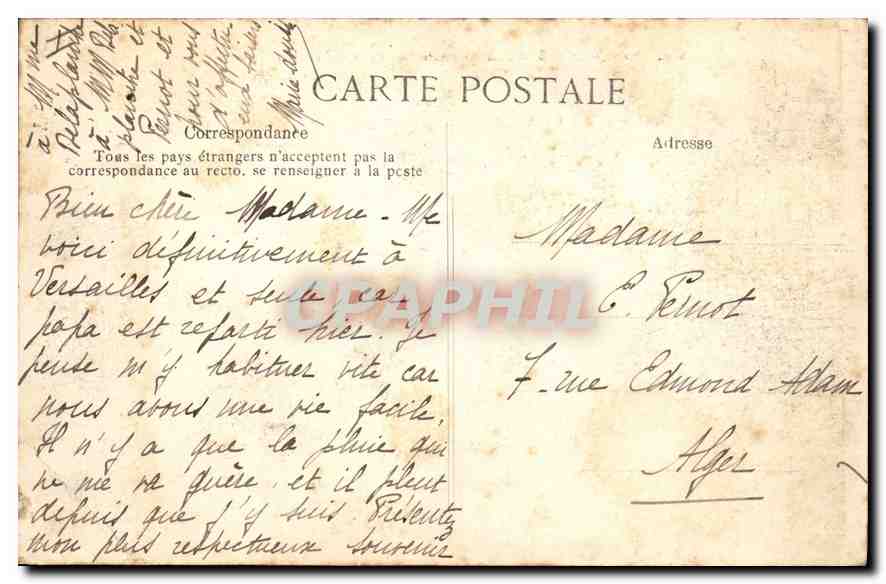 CARTE POSTALE
Correspondance
Tous les pays étrangers n'acceptent pas la
correspondance au recto, se renseigner à la poste
Adresse
Bien chère Madame - Me
voici définitivement à
Versailles et seule car
papa est reparti hier. Je
pense m'y habituer vite car
nous avons une vie facile.
Il n'y a que la pluie qui
ne me va guère, et il pleut
depuis que j'y suis. Présentez
mon plus respectueux souvenir
à Mme
Delaplanche
à MM Dela
planche et
Pernot et
pour vous
d'affectu
eux baisers
Madame
E. Pernot
7 - rue Edmond Adam
Alger
CAPHIL